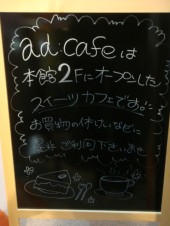 ad:cafeは
本館2Fにオープンした
スイーツカフェです。
お買物の休けいなどに
是非ご利用下さいませ